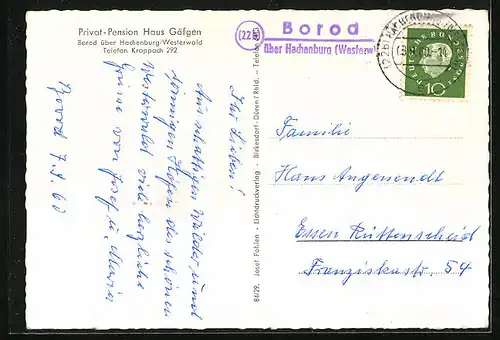 Privat-Pension Haus Gäfgen
Borod über Hachenburg/Westerwald
Telefon Kroppach 292
Borod 7.9.60
Ihr Lieben!
Aus schattigen Wälder, und
sonnigen Höhen des schönen
Westerwald viele herzliche
Grüsse von Josef u. Maria
8429. Josef Pohlen - Lichtdruckverlag - Birkesdorf-Düren / Rhld. - Telefon
(22b)
Borod
über Hachenburg (Westerw)
DEUTSCHE BUNDESPOST
10
Familie
Hans Angenendt
Essen Rüttenscheid
Franziskastr. 54